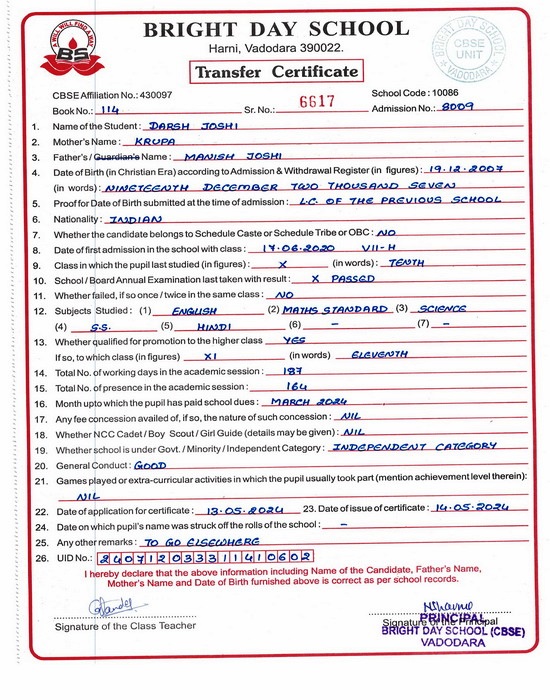 A WILL WILL FIND A WAY
BS
BRIGHT DAY SCHOOL
Harni, Vadodara 390022.
Transfer Certificate
BRIGHT DAY SCHOOL
CBSE
UNIT
VADODARA
CBSE Affiliation No.: 430097 School Code : 10086
Book No.: 114 Sr. No.: 6617 Admission No.: 8009
1. Name of the Student : DARSH JOSHI
2. Mother's Name : KRUPA
3. Father's / Guardian's Name : MANISH JOSHI
4. Date of Birth (in Christian Era) according to Admission & Withdrawal Register (in figures) : 19.12.2007
(in words) : NINETEENTH DECEMBER TWO THOUSAND SEVEN
5. Proof for Date of Birth submitted at the time of admission : L.C. OF THE PREVIOUS SCHOOL
6. Nationality : INDIAN
7. Whether the candidate belongs to Schedule Caste or Schedule Tribe or OBC : NO
8. Date of first admission in the school with class : 17.06.2020 VII-H
9. Class in which the pupil last studied (in figures) : X (in words) : TENTH
10. School / Board Annual Examination last taken with result : X PASSED
11. Whether failed, if so once / twice in the same class : NO
12. Subjects Studied : (1) ENGLISH (2) MATHS STANDARD (3) SCIENCE
(4) S.S. (5) HINDI (6) – (7) –
13. Whether qualified for promotion to the higher class YES
If so, to which class (in figures) XI (in words) ELEVENTH
14. Total No. of working days in the academic session : 187
15. Total No. of presence in the academic session : 164
16. Month upto which the pupil has paid school dues : MARCH 2024
17. Any fee concession availed of, if so, the nature of such concession : NIL
18. Whether NCC Cadet / Boy Scout / Girl Guide (details may be given) : NIL
19. Whether school is under Govt. / Minority / Independent Category : INDEPENDENT CATEGORY
20. General Conduct : GOOD
21. Games played or extra-curricular activities in which the pupil usually took part (mention achievement level therein):
NIL
22. Date of application for certificate : 13.05.2024 23. Date of issue of certificate : 14.05.2024
24. Date on which pupil's name was struck off the rolls of the school : –
25. Any other remarks : TO GO ELSEWHERE
26. UID No.: 240712033311410602
I hereby declare that the above information including Name of the Candidate, Father's Name,
Mother's Name and Date of Birth furnished above is correct as per school records.
Signature of the Class Teacher Signature of the Principal
PRINCIPAL
BRIGHT DAY SCHOOL (CBSE)
VADODARA